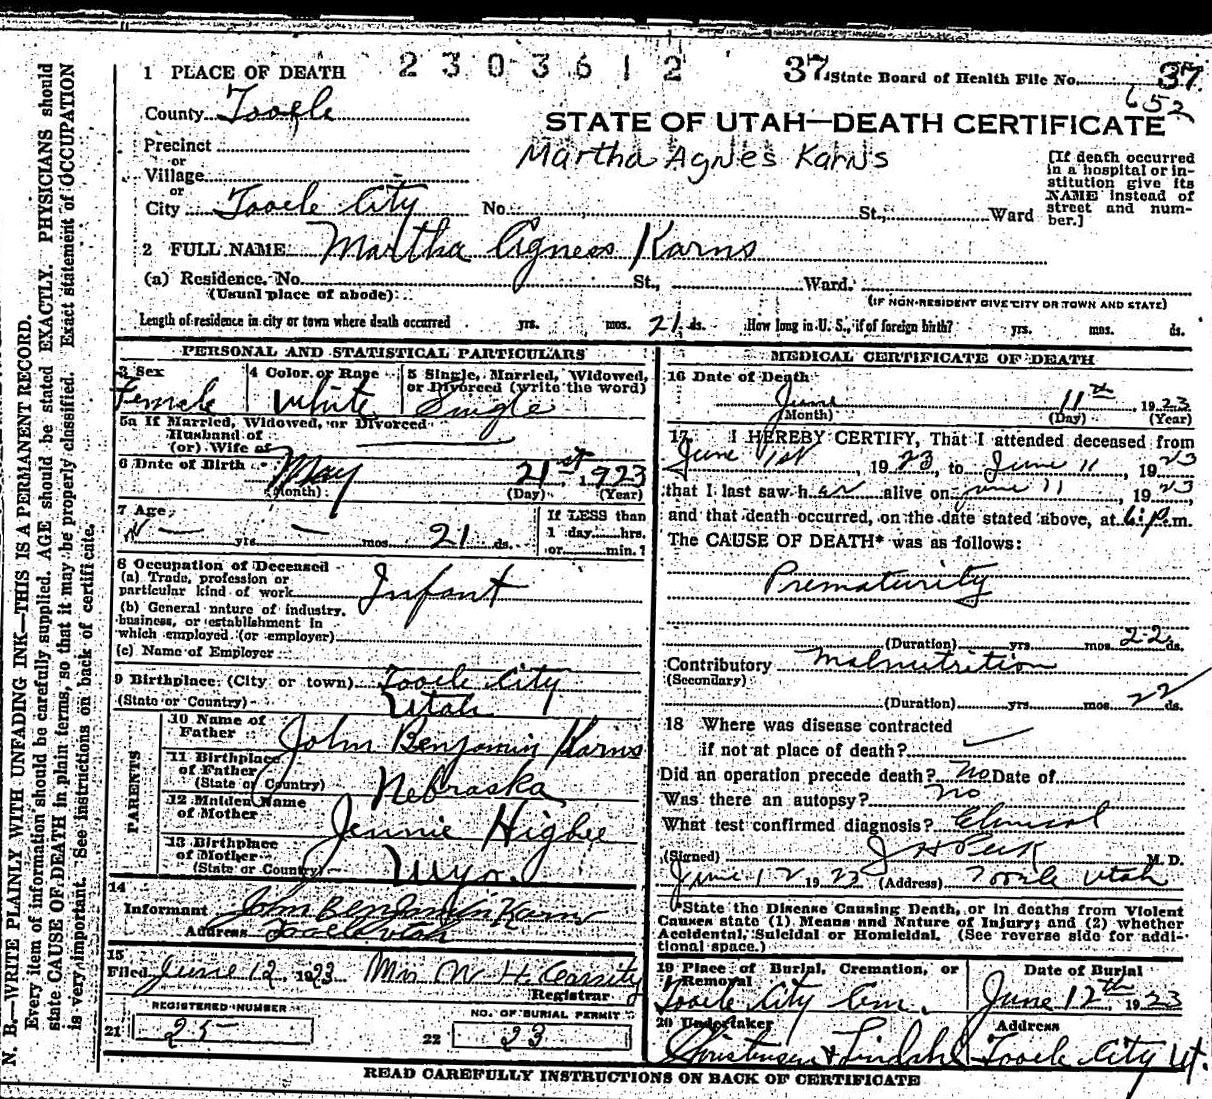 1 PLACE OF DEATH 2303612 37 State Board of Health File No. 37
652
County Tooele
STATE OF UTAH—DEATH CERTIFICATE
Martha Agnes Karns
Precinct
or
Village
or
City Tooele City No. St., Ward
[If death occurred
in a hospital or in-
stitution give its
NAME instead of
street and num-
ber.]
2 FULL NAME Martha Agness Karns
(a) Residence. No. St., Ward.
(Usual place of abode) (IF NON-RESIDENT GIVE CITY OR TOWN AND STATE)
Length of residence in city or town where death occurred yrs. mos. 21 ds. How long in U. S., if of foreign birth? yrs. mos. ds.
PERSONAL AND STATISTICAL PARTICULARS
3 Sex
Female
4 Color or Race
White
5 Single, Married, Widowed,
or Divorced (write the word)
Single
5a If Married, Widowed, or Divorced
Husband of
(or) Wife of
6 Date of Birth May 21st 1923
(Month) (Day) (Year)
7 Age
yrs. mos. 21 ds.
If LESS than
1 day hrs.
or min.?
8 Occupation of Deceased
(a) Trade, profession or
particular kind of work Infant
(b) General nature of industry,
business, or establishment in
which employed (or employer)
(c) Name of Employer
9 Birthplace (City or town) Tooele City
(State or Country) Utah
PARENTS
10 Name of
Father John Benjamin Karns
11 Birthplace
of Father
(State or Country) Nebraska
12 Maiden Name
of Mother Jennie Higbee
13 Birthplace
of Mother
(State or Country) Wyo.
14
Informant John Benjamin Karns
Address Tooele Utah
15
Filed June 12 1923 Mrs W. H. Cassity
Registrar
REGISTERED NUMBER
21 25
NO. OF BURIAL PERMIT
22 23
MEDICAL CERTIFICATE OF DEATH
16 Date of Death
June 11th, 1923
(Month) (Day) (Year)
17 I HEREBY CERTIFY, That I attended deceased from
June 1st, 1923, to June 11, 1923
that I last saw her alive on June 11, 1923,
and that death occurred, on the date stated above, at 6 p.m.
The CAUSE OF DEATH* was as follows:
Prematurity
(Duration) yrs. mos. 22 ds.
Contributory Malnutrition
(Secondary)
(Duration) yrs. mos. 22 ds.
18 Where was disease contracted
if not at place of death?
Did an operation precede death? no Date of
Was there an autopsy? no
What test confirmed diagnosis? Clinical
(Signed) J H Peck M. D.
June 12 1923 (Address) Tooele Utah
*State the Disease Causing Death, or in deaths from Violent
Causes state (1) Means and Nature of Injury; and (2) whether
Accidental, Suicidal or Homicidal. (See reverse side for addi-
tional space.)
19 Place of Burial, Cremation, or
Removal
Tooele City Cem.
Date of Burial
June 12th, 1923
20 Undertaker
Christensen & Lindahl
Address
Tooele City Ut.
READ CAREFULLY INSTRUCTIONS ON BACK OF CERTIFICATE
N. B.—WRITE PLAINLY WITH UNFADING INK—THIS IS A PERMANENT RECORD.
Every item of information should be carefully supplied. AGE should be stated EXACTLY. PHYSICIANS should
state CAUSE OF DEATH in plain terms, so that it may be properly classified. Exact statement of OCCUPATION
is very important. See instructions on back of certificate.